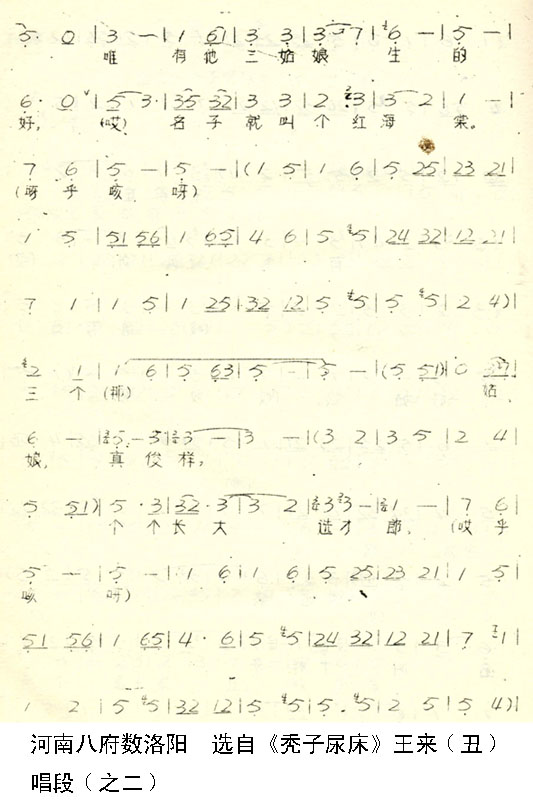 5 0 | 3 — | 1 6 | 3 3 | 3 7 | 6 — | 5 — |
唯 有他 三姑娘 生 的
6· 0 | 5 3· | 35 32 | 3 3 | 2 3 | 3 2 | 1 — |
好, (哎) 名子就叫个红海 棠。
7 6 | 5 — | 5 — | (1 5 | 1 6 | 5 25 | 23 21 |
(呀乎 咳 呀)
1 5 | 51 56 | 1 65 | 4 6 | 5 5 | 24 32 | 12 21 |
7 1 | 1 5 | 1 25 | 32 12 | 5 5 | 5 5 | 2 4) |
2 1 | 1 6 | 5 63 | 5 — | 5 — | (5 51) | 0
三 个 (那) 姑
6 — | 5 — 3 | 3 — | 3 — | (3 2 | 3 5 | 2 4 |
娘, 真 俊样,
5 51) | 5 · 3 | 32 · 3 | 3 2 | 3 3 — | 1 — | 7 6 |
个 个长 大 选才 郎, (哎乎
5 — | 5 — | 1 6 | 1 6 | 5 25 | 23 21 | 1 5 |
咳 呀)
51 56 | 1 65 | 4 · 6 | 5 5 | 24 32 | 12 21 | 7 1 |
1 2 | 5 5 | 32 12 | 5 5 | 5 · 5 | 2 5 | 5 4) |
河南八府数洛阳 选自《秃子尿床》王来（丑）
唱段（之二）